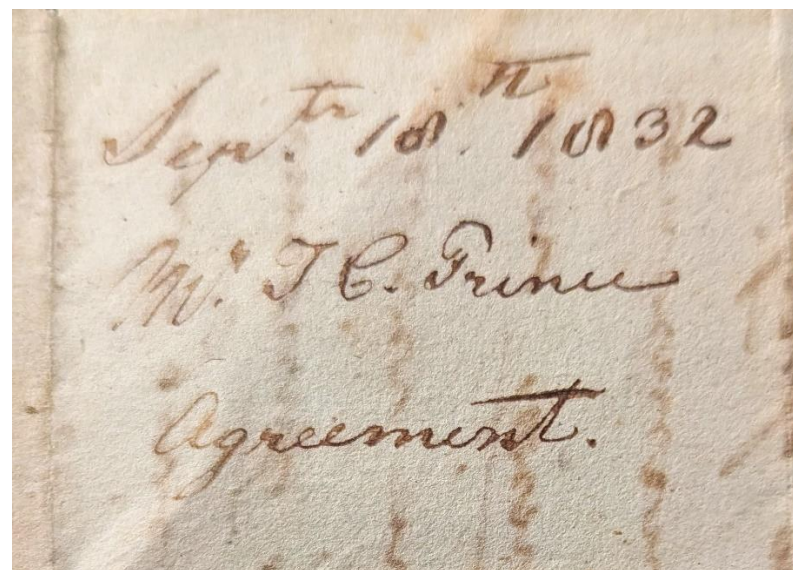 Septr. 18.th 1832
Mr. T C. Prince
Agreement.